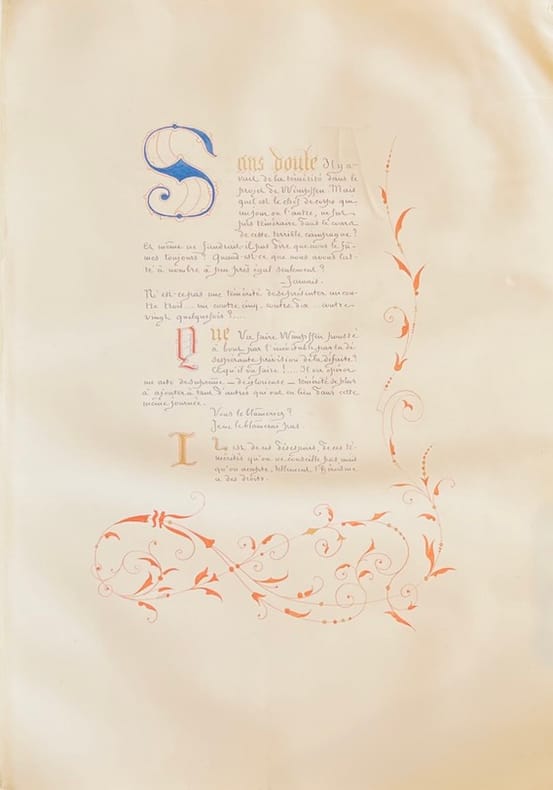 Sans doute Il y a-
vait de la témérité dans le
projet de Wimpffen Mais
quel est le chef de corps qui
un jour ou l'autre, ne fut
pas téméraire dans le cours
de cette terrible campagne?
Et même ne faudrait-il pas dire que nous le fû-
mes toujours? Quand est-ce que nous avons lut-
té à nombre à peu près égal seulement?
_Jamais.
N'est-ce pas une témérité de se présenter un con-
tre trois... un contre cinq. contre dix... contre
vingt quelquefois?....
Que Va faire Wimpffen poussé
à bout par l'inévitable, par la dé
sespérante prévision de la défaite?
Ce qu'il va faire!.... Il va opérer
un acte de suprême _ de glorieuse _ témérité de plus
à ajouter à tant d'autres qui ont eu lieu dans cette
même journée.
Vous le blâmerez?
Je ne le blâmerai pas.
Il est de ces désespoirs, de ces té-
mérités qu'on ne conseille pas, mais
qu'on accepte, tellement l'héroïsme
a des droits.